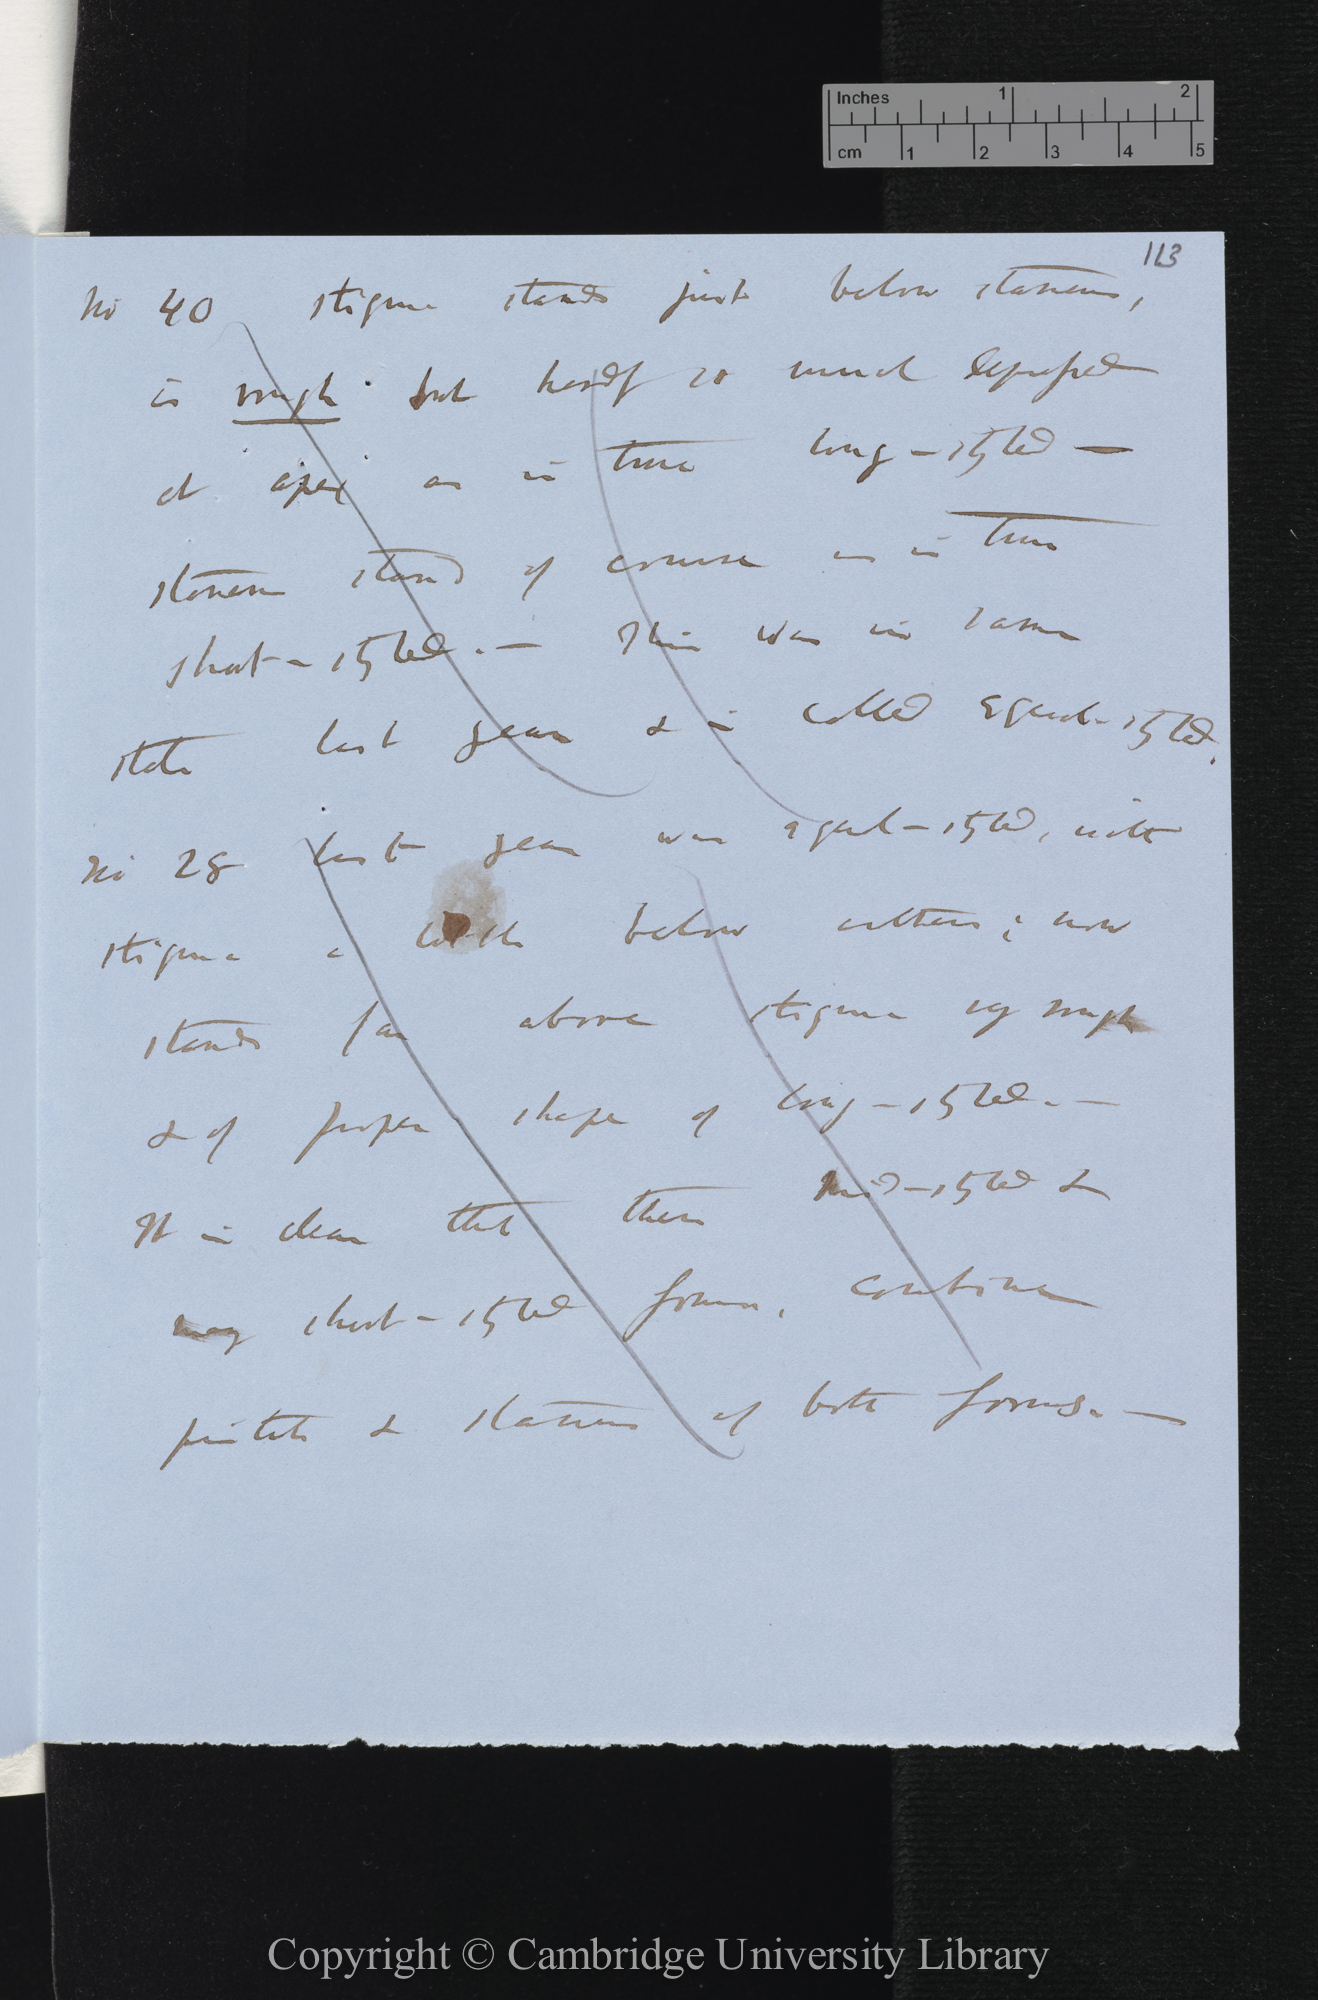 Inches 1 2
cm 1 2 3 4 5
113
No 40 stigma stands just below stamens,
is rough but hardly so much depressed
at apex as in true long-styled —
stamens stand of course as in true
short-styled. — This was in same
state last year & is called equal-styled.
No 28 last year was equal-styled, with
stigma a little below anthers; now
stands far above stigma very rough
& of proper shape of long-styled. —
It is clear that these mid-styled &
may short-styled forms, combine
pistils & stamens of both forms. —
Copyright © Cambridge University Library